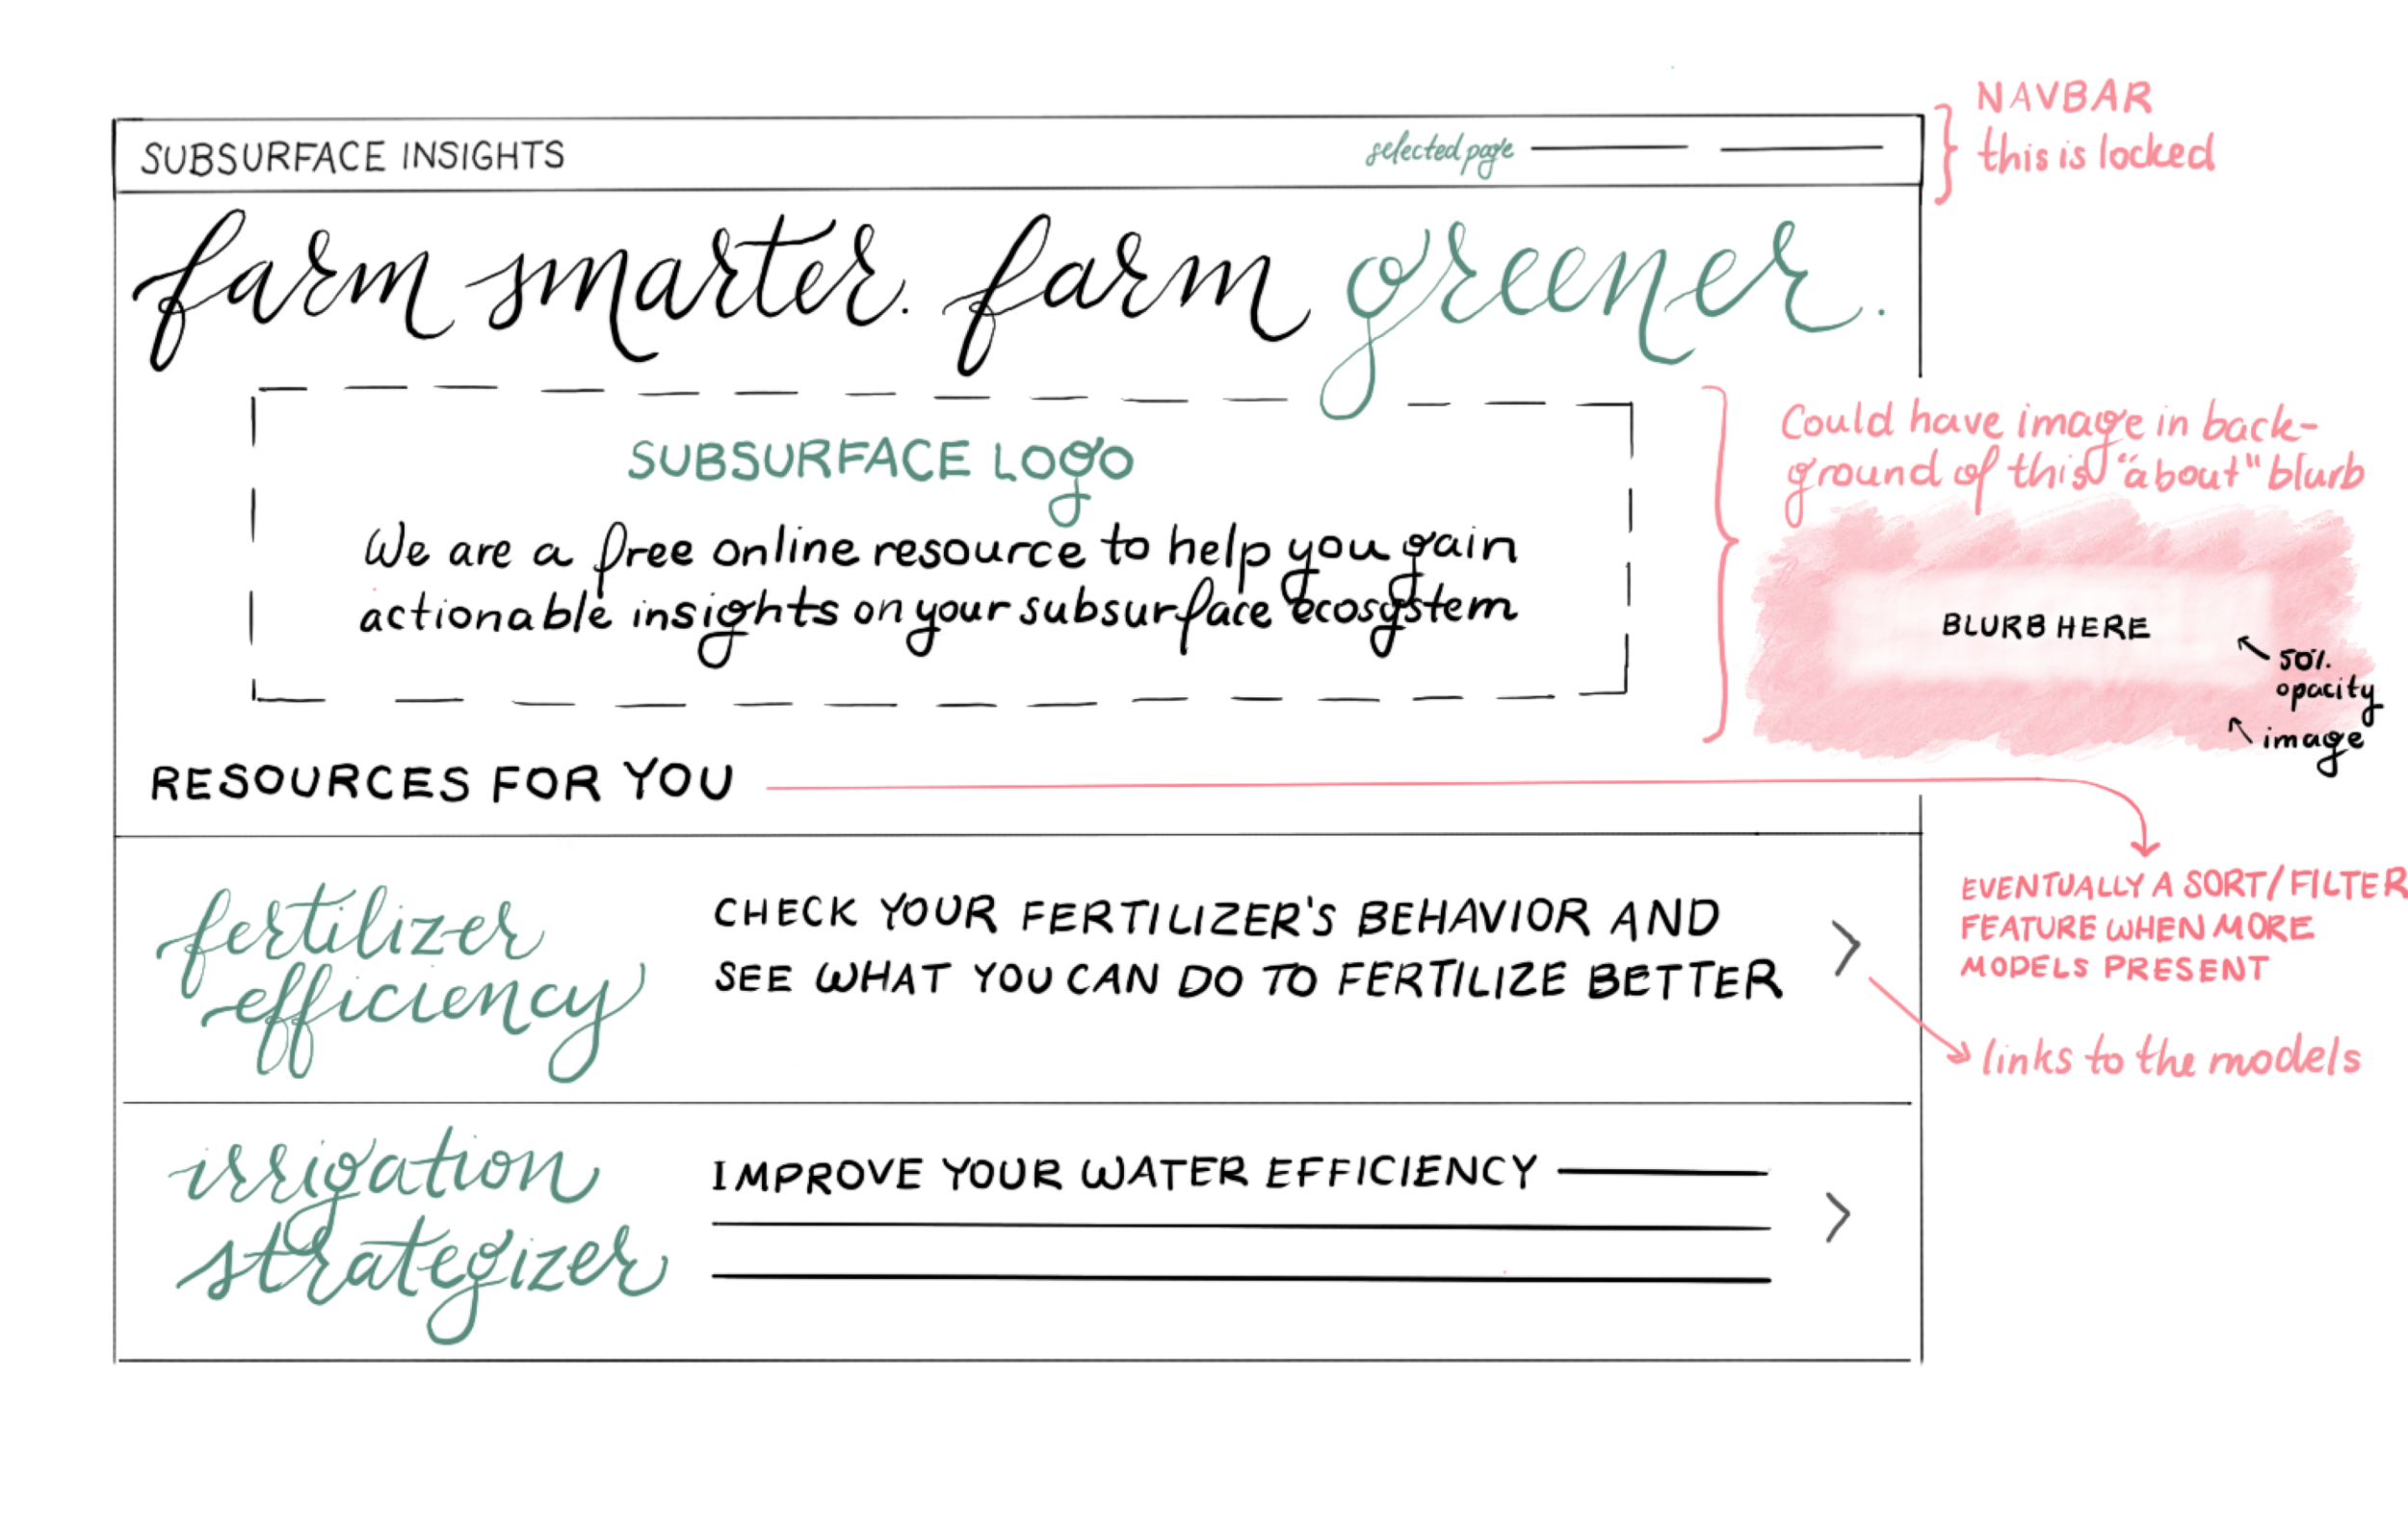 NAVBAR
this is locked
SUBSURFACE INSIGHTS
selected page
farm smarter. farm greener.
Could have image in back-
ground of this "about" blurb
SUBSURFACE LOgO
We are a free online resource to help you gain
actionable insights on your subsurface ecosystem
BLURB HERE
50%
opacity
image
RESOURCES FOR YOU
EVENTUALLY A SORT/FILTER
FEATURE WHEN MORE
MODELS PRESENT
fertilizer
efficiency
CHECK YOUR FERTILIZER'S BEHAVIOR AND
SEE WHAT YOU CAN DO TO FERTILIZE BETTER
>
links to the models
irrigation
strategizer
IMPROVE YOUR WATER EFFICIENCY
>